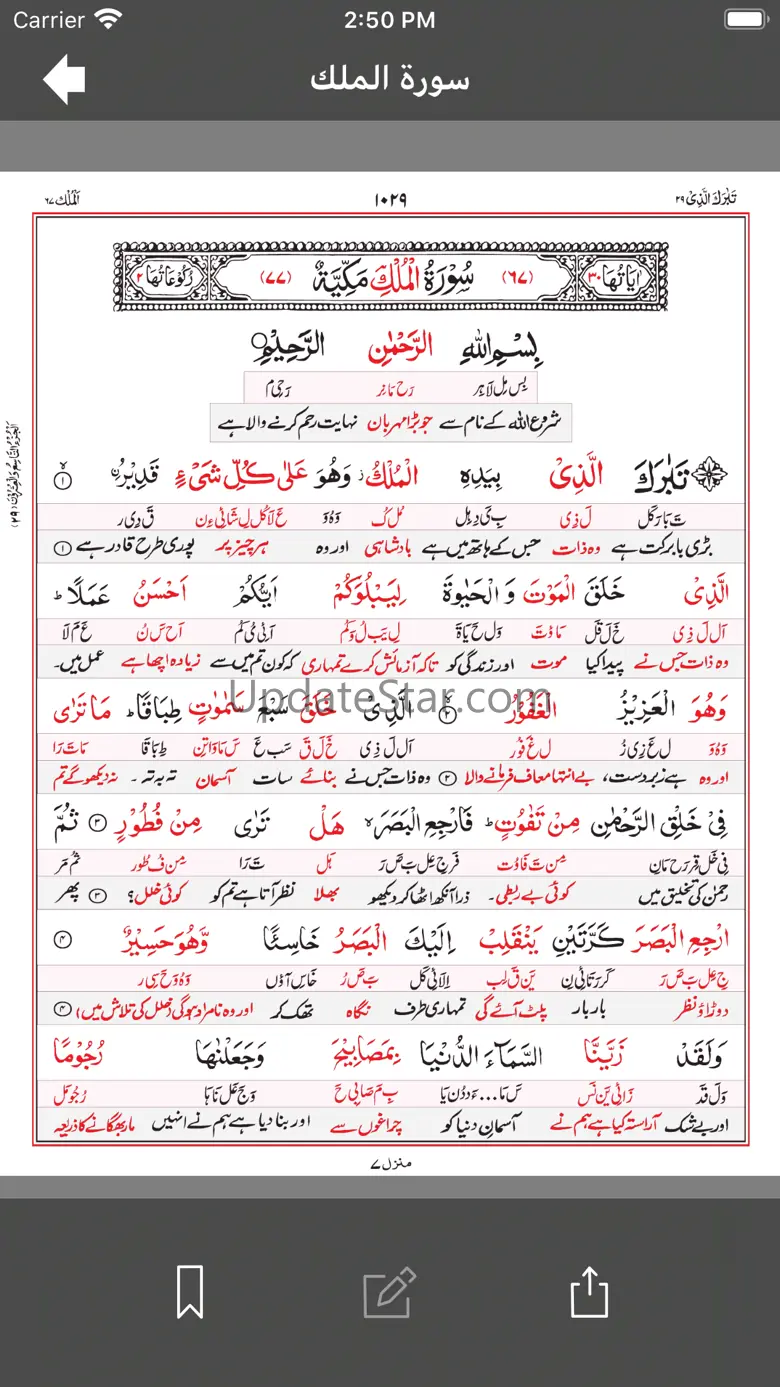 Carrier 2:50 PM
سورة الملك
تَبٰرَكَ الَّذِیْ ۲۹ ۱۰۲۹ اَلْمُلْك ۶۷
اٰیَاتُهَا ۳۰ (۶۷) سُوْرَةُ الْمُلْكِ مَكِّیَّةٌ (۷۷) رُكُوْعَاتُهَا ۲
بِسْمِ اللّٰهِ الرَّحْمٰنِ الرَّحِیْمِ
بِس مِل لَاہِر رَح مَانِر رَحِی م
شروع اللہ کے نام سے جو بڑا مہربان نہایت رحم کرنے والا ہے
تَبٰرَكَ الَّذِیْ بِیَدِهِ الْمُلْكُ ز وَهُوَ عَلٰی كُلِّ شَیْءٍ قَدِیْرُ ۱
تَ بَا رَ کَل لَ ذِی بِ یَ دِ ہِل مُل کُ وَ ہُ وَ عَ لَا کُل لِ شَائیِ ءِن قَ دِی ر
بڑی بابرکت ہے وہ ذات جس کے ہاتھ میں ہے بادشاہی اور وہ ہر چیز پر پوری طرح قادر ہے ۱
الَّذِیْ خَلَقَ الْمَوْتَ وَ الْحَیٰوةَ لِیَبْلُوَكُمْ اَیُّكُمْ اَحْسَنُ عَمَلًا ط
اَل لَ ذِی خَ لَ قَل مَاوْتَ وَل حَ یَا ۃَ لِ یَب لُ وَ کُم اَئیُ یُ کُم اَح سَ نُ عَ مَ لَا
وہ ذات جس نے پیدا کیا موت اور زندگی کو تاکہ آزمائش کرے تمہاری کہ کون تم میں سے زیادہ اچھا ہے عمل میں۔
وَهُوَ الْعَزِیْزُ الْغَفُوْرُ ۲ الَّذِیْ خَلَقَ سَبْعَ سَمٰوٰتٍ طِبَاقًا ط مَا تَرٰی
UpdateStar.com
وَ ہُ وَ ل عَ زِی زُ ل غَ فُور اَل لَ ذِی خَ لَ قَ سَب عَ سَ مَا وَاتِن طِ بَا قَا مَا تَ رَا
اور وہ ہے زبردست، بے انتہا معاف فرمانے والا ۲ وہ ذات جس نے بنائے سات آسمان تہ بہ تہ۔ نہ دیکھو گے تم
فِیْ خَلْقِ الرَّحْمٰنِ مِنْ تَفٰوُتٍ ط فَارْجِعِ الْبَصَرَ لا هَلْ تَرٰی مِنْ فُطُوْرٍ ۳ ثُمَّ
فِی خَل قِر رَح مَانِ مِن تَ فَا وُت فَر جِ عِل بَ صَ رَ ہَل تَ رَا مِن فُ طُور ثُم مَر
رحمٰن کی تخلیق میں کوئی بے ربطی۔ ذرا آنکھ اٹھا کر دیکھو بھلا نظر آتا ہے تم کو کوئی خلل؟ ۳ پھر
ارْجِعِ الْبَصَرَ كَرَّتَیْنِ یَنْقَلِبْ اِلَیْكَ الْبَصَرُ خَاسِئًا وَّهُوَ حَسِیْرٌ ۴
جِ عِل بَ صَ رَ کَر رَ تَائیِ نِ یَن قَ لِب اِلَائیِ کَل بَ صَ رُ خَاسِ آوُں وَ ہُ وَ حَ سِی ر
دوڑاؤ نظر بار بار پلٹ آئے گی تمہاری طرف نگاہ تھک کر اور وہ نامراد ہوگی (خلل کی تلاش میں) ۴
وَلَقَدْ زَیَّنَّا السَّمَآءَ الدُّنْیَا بِمَصَابِیْحَ وَجَعَلْنٰهَا رُجُوْمًا
وَ لَ قَد زَائیِ یَن نَس سَ مَا...ءَ دد ُن یَا بِ مَ صَا بِی حَ وَ جَ عَل نَا ہَا رُ جُو مَل
اور بے شک آراستہ کیا ہے ہم نے آسمانِ دنیا کو چراغوں سے اور بنا دیا ہے ہم نے انہیں مار بھگانے کا ذریعہ
منزل ۷